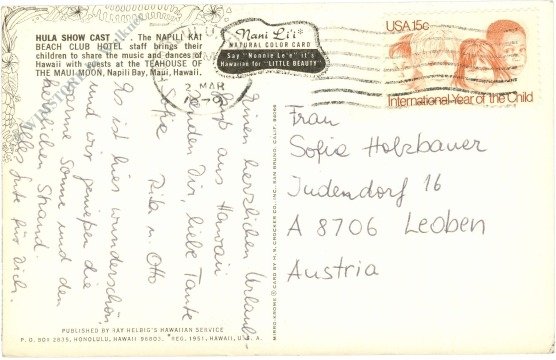 HULA SHOW CAST . . . The NAPILI KAI
BEACH CLUB HOTEL staff brings their
children to share the music and dances of
Hawaii with guests at the TEAHOUSE OF
THE MAUI MOON, Napili Bay, Maui, Hawaii.
Nani Li'i*
NATURAL COLOR CARD
Say "Nannie Lee" it's
Hawaiian for "LITTLE BEAUTY"
USA 15c
International Year of the Child
2 MAR
Einen herzlichen Urlaub-
gruß aus Hawaii
senden Dir, liebe Tante
Sofie Rita u. Otto
Es ist hier wunderschön
und wir genießen die
warme Sonne und den
herrlichen Strand.
Alles Gute für Dich.
Frau
Sofia Holzbauer
Judendorf 16
A 8706 Leoben
Austria
MIRRO-KROME ® CARD BY H. S. CROCKER CO., INC. SAN BRUNO, CALIF. 94066
PUBLISHED BY RAY HELBIG'S HAWAIIAN SERVICE
P. O. BOX 2835, HONOLULU, HAWAII 96803. *REG. 1951, HAWAII, U.S.A.